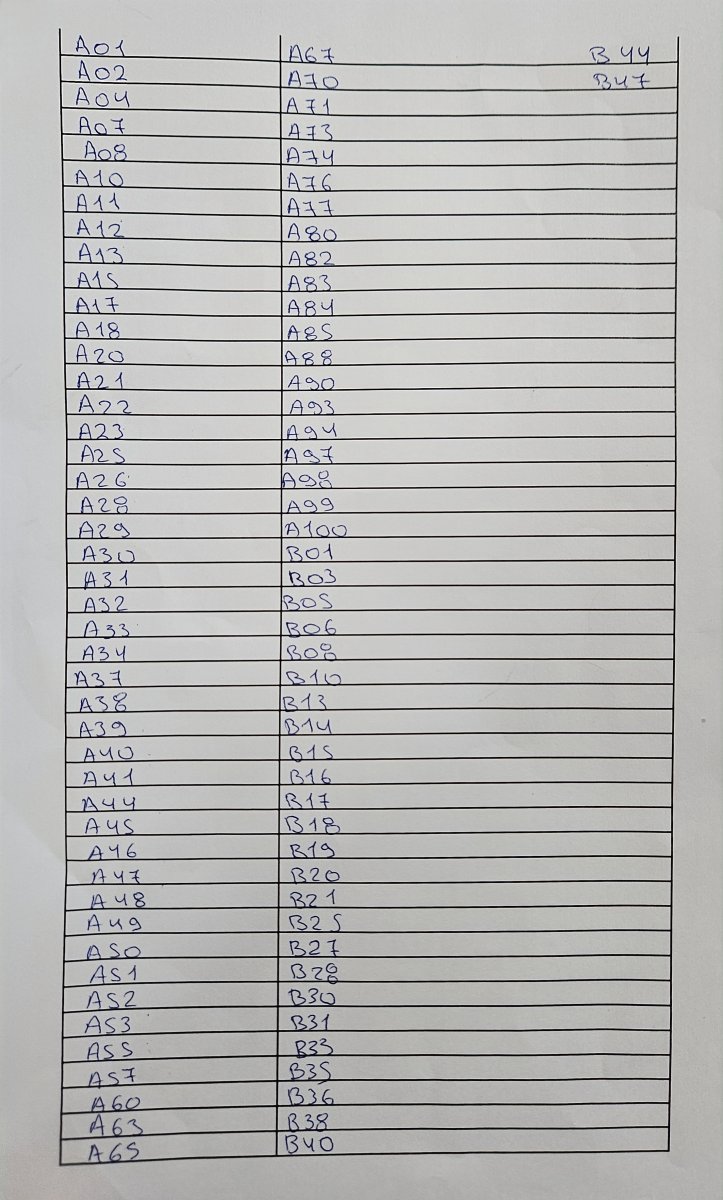 A01
A02
A04
A07
A08
A10
A11
A12
A13
A15
A17
A18
A20
A21
A22
A23
A25
A26
A28
A29
A30
A31
A32
A33
A34
A37
A38
A39
A40
A41
A44
A45
A46
A47
A48
A49
A50
A51
A52
A53
A55
A57
A60
A63
A65
A67
A70
A71
A73
A74
A76
A77
A80
A82
A83
A84
A85
A88
A90
A93
A94
A97
A98
A99
A100
B01
B03
B05
B06
B08
B10
B13
B14
B15
B16
B17
B18
B19
B20
B21
B25
B27
B28
B30
B31
B33
B35
B36
B38
B40
B44
B47